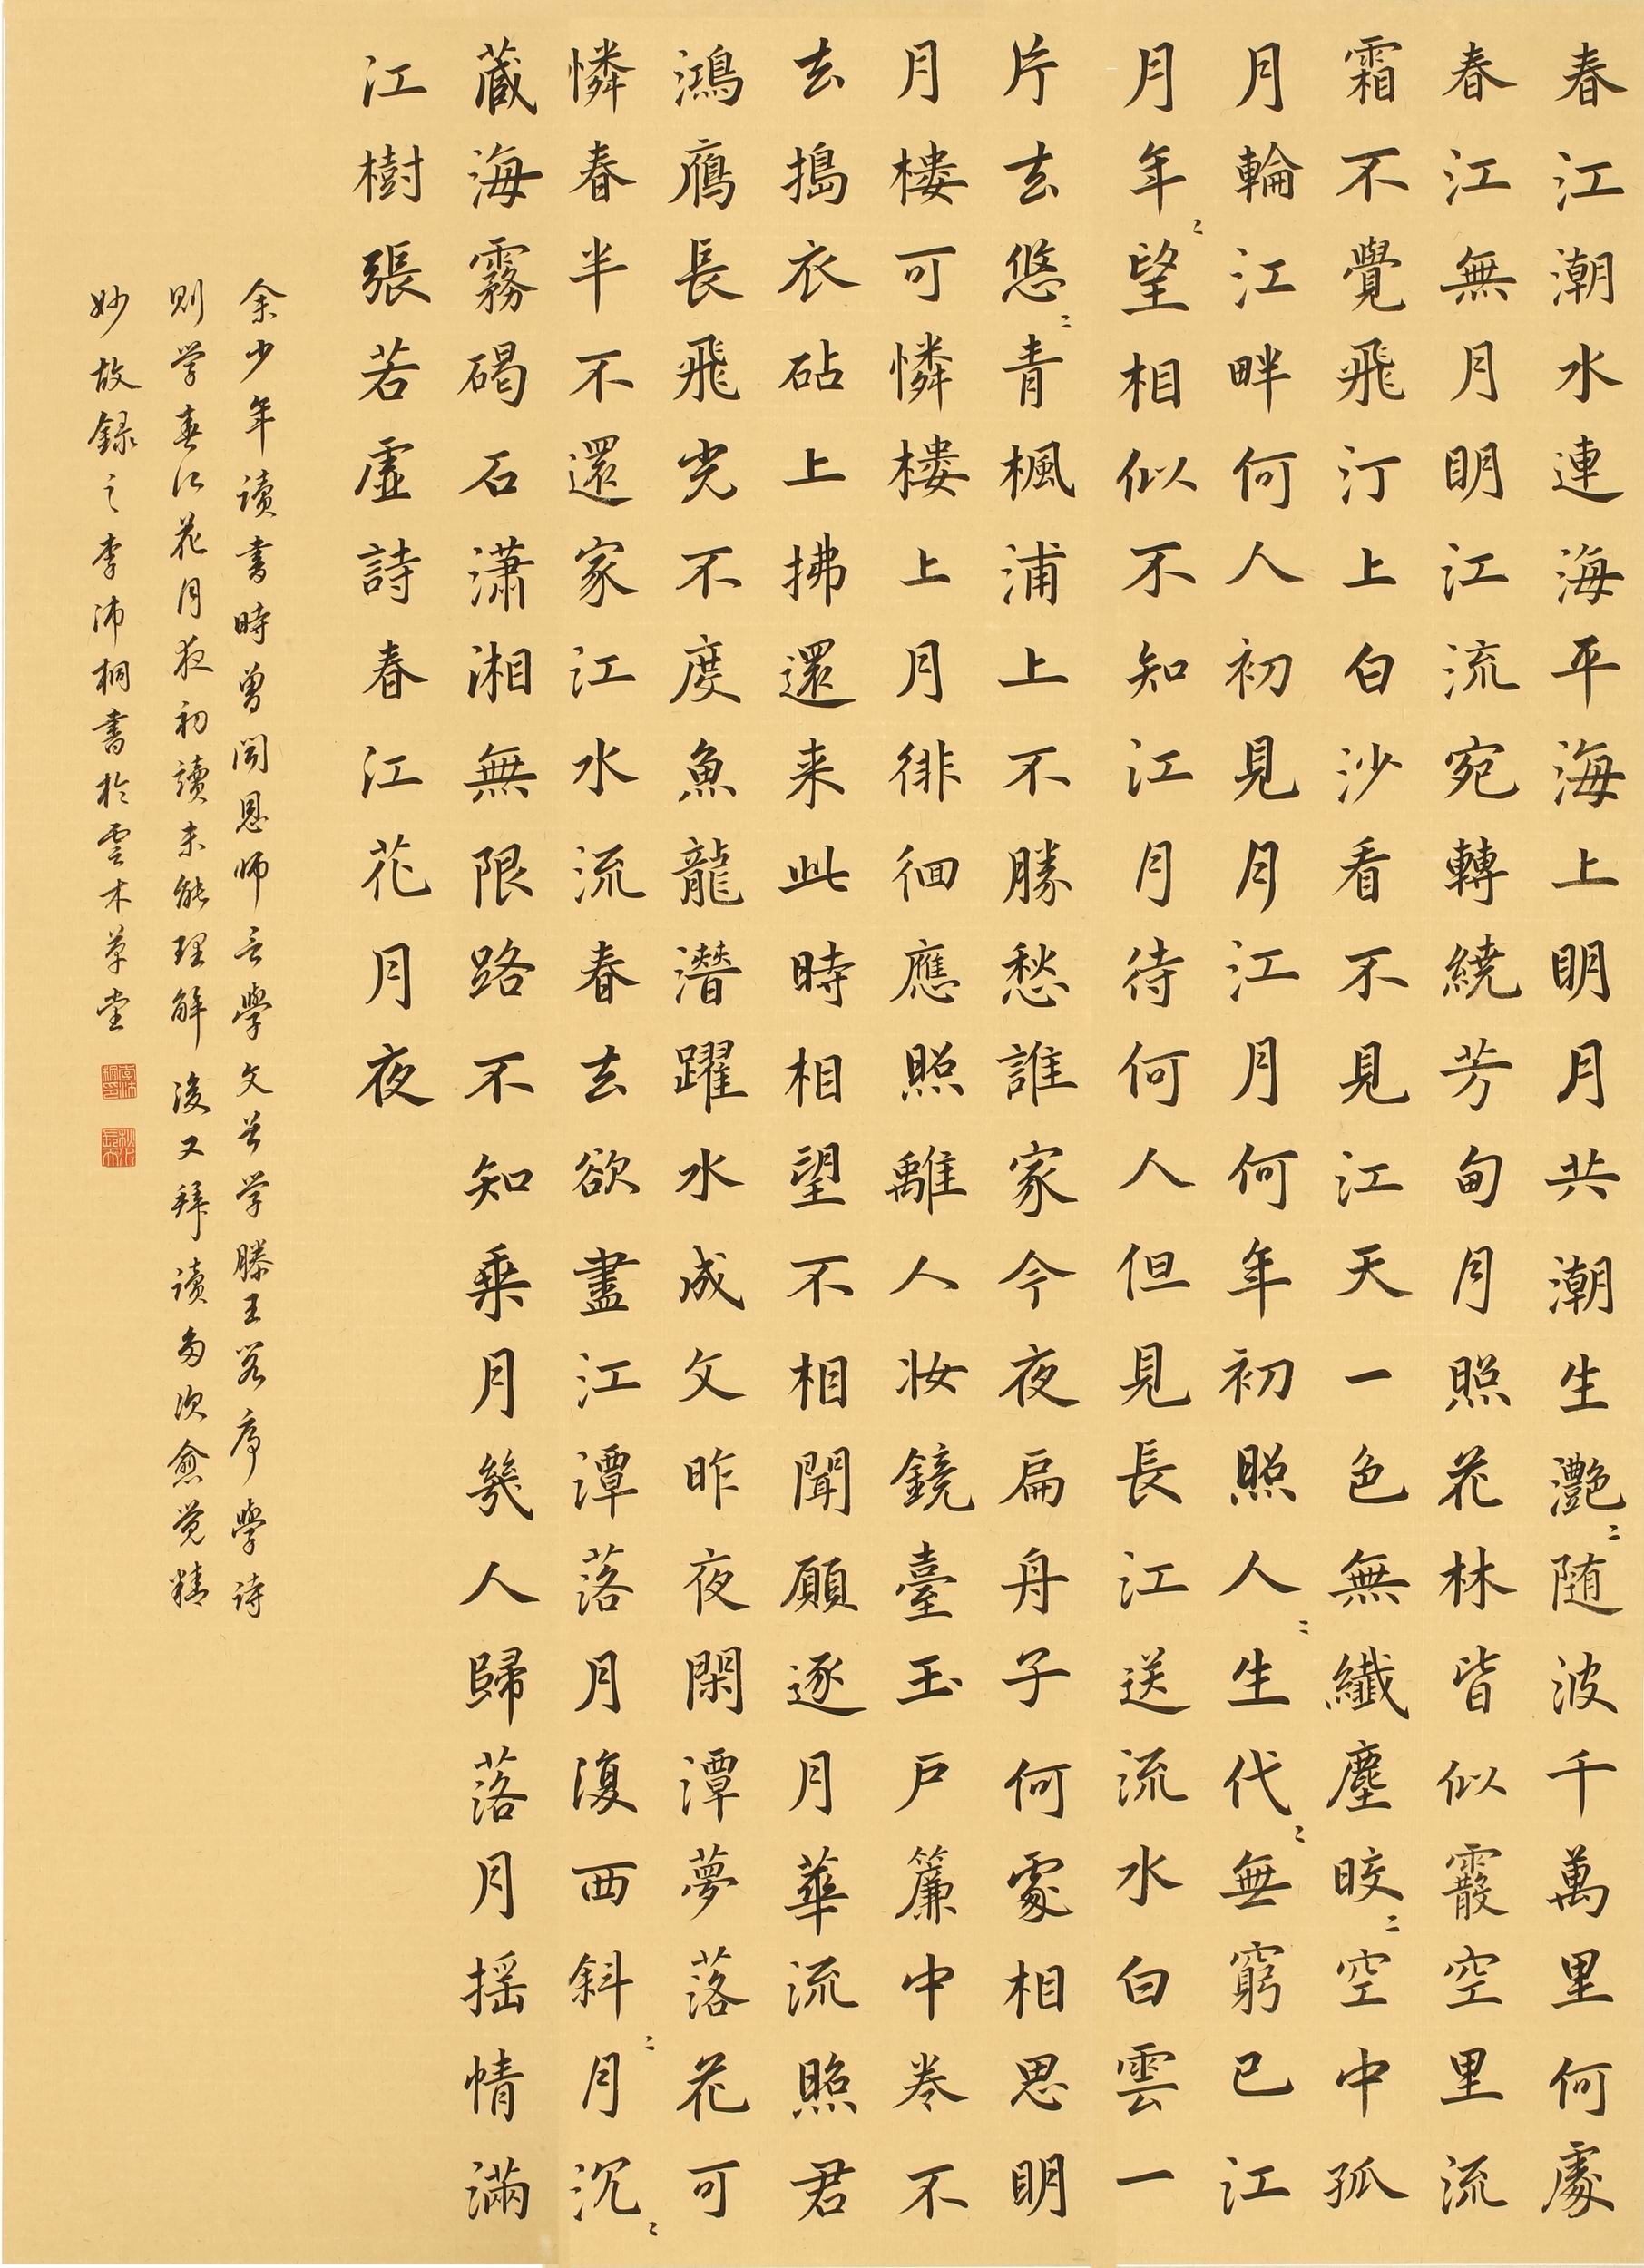 春江潮水連海平海上明月共潮生灩〻随波千萬里何處
春江無月明江流宛轉繞芳甸月照花林皆似霰空里流
霜不覺飛汀上白沙看不見江天一色無纖塵皎〻空中孤
月輪江畔何人初見月江月何年初照人〻生代〻無窮已江
月年〻望相似不知江月待何人但見長江送流水白雲一
片去悠〻青楓浦上不勝愁誰家今夜扁舟子何處相思明
月楼可憐楼上月徘徊應照離人妝鏡臺玉戶簾中卷不
去搗衣砧上拂還来此時相望不相聞願逐月華流照君
鴻鴈長飛光不度魚龍潛躍水成文昨夜閑潭夢落花可
憐春半不還家江水流春去欲盡江潭落月復西斜〻月沉〻
蔵海霧碣石瀟湘無限路不知乘月幾人歸落月摇情滿
江樹張若虛詩春江花月夜
余少年讀書時曾聞恩师言學文当学滕王阁序學诗
则学春江花月夜初讀未能理解後又拜读多次愈觉精
妙故録之李沛桐書於雲木草堂